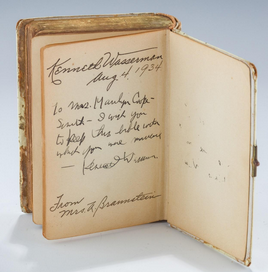 Kenneth Wasserman
Aug 4, 1934
To Mrs. Marilyn Cope-
Smith - I wish you
to keep this bible with
which you are
— Kenneth
From
Mrs. A. Braunstein